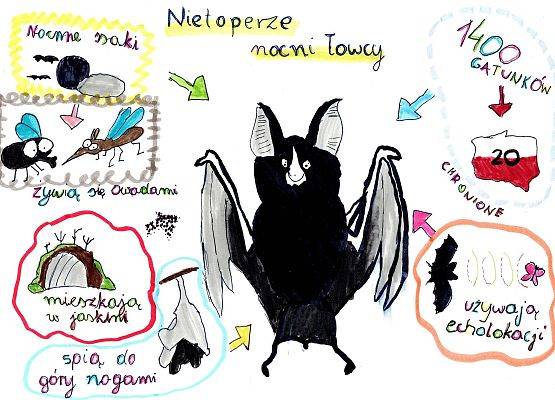 Nietoperze
nocni łowcy
Nocne ssaki
żywią się owadami
mieszkają
w jaskini
śpią do
góry nogami
1400
GATUNKÓW
20
CHRONIONE
używają
echolokacji